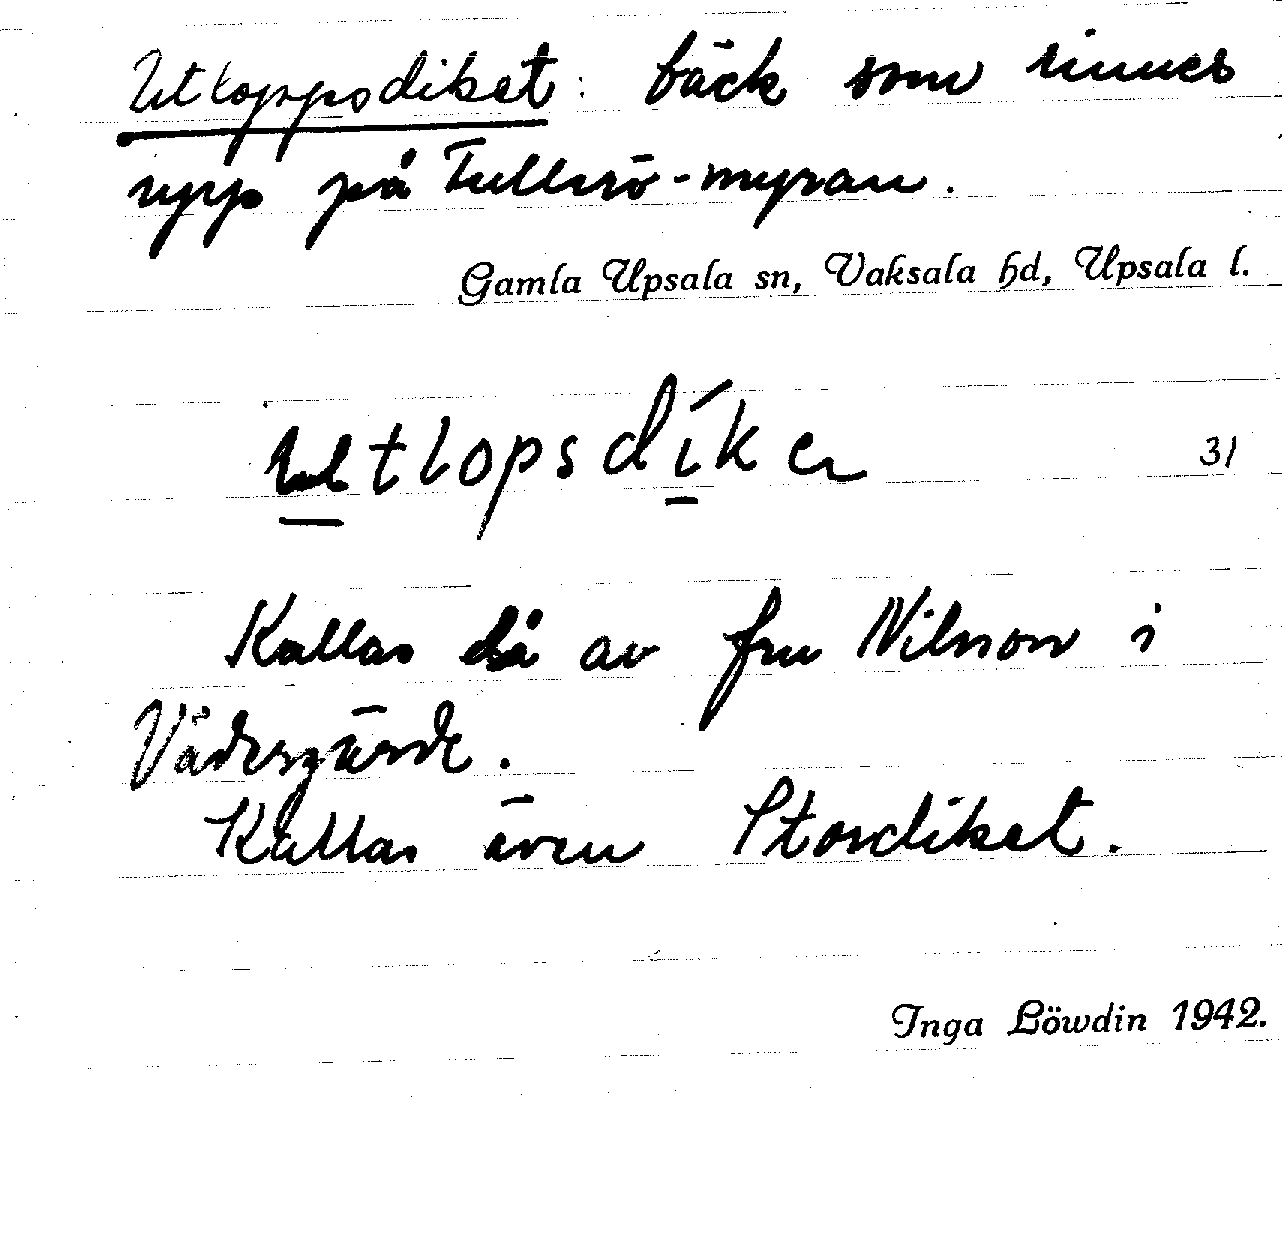 Utloppsdiket: bäck som rinner
upp på Tullerö-myran.
Gamla Upsala sn, Vaksala hd, Upsala l.
utlopsdíker 31
Kallas så av fru Nilsson i
Vådersgärde.
Kallas även Stordiket.
Inga Löwdin 1942.